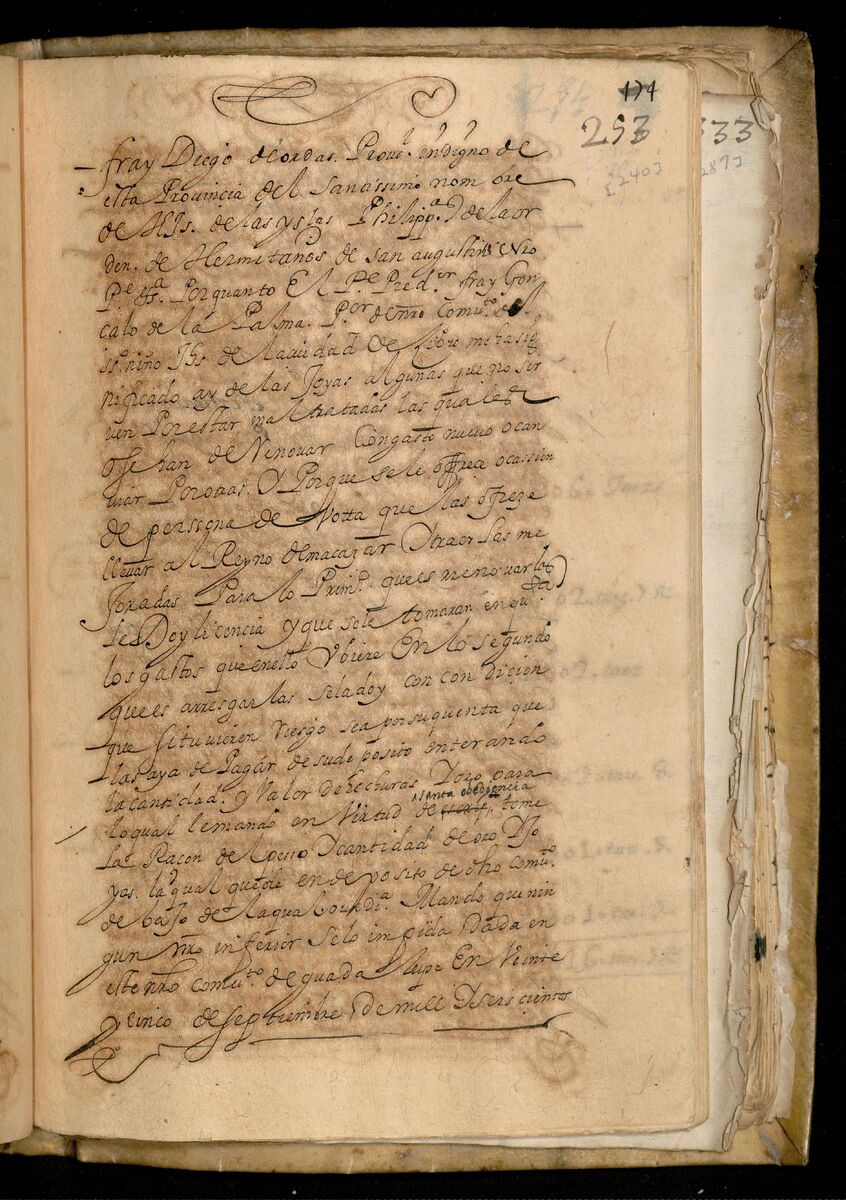 174
253
333
[240]
287]
fray Diego de ordas. Prouj.l indigno de
esta Prouincia del Santissimo nombre
de HJs. de las yslas Philipp.as de la or
den. de Hermitaños de san augustin Nro
P.e &.a Por quanto El P.e Pred.or fray Gon
calo de la Palma. P.or de nro Comu.to del
ss.mo niño Jhs de la ciudad de me ha sig
nificado ay de las Joyas algunas que no sir
uen Por estar mal tratadas las quales
o se han de Renouar Con gasto nueuo o can
uiar Por otras. Y Porque se le offrece ocassion
de perssona deVotta que las offreze
lleuar al Reyno de macazar Y traer Las me
Joradas Para lo Prim.o que es renouarlas
le Doy licencia y que se le tomaran en qu.ta
los gastos que en ello Vbiere En lo segundo
que es arresgarlas se la doy con condicion
que si tuuieren riesgo sea por su quenta que
las aya de Pagar de su deposito enterando
la cantidad. y Valor d hechuras Y oro para
lo qual le mando en Virtud de santa obediencia tome
La Racon del pesso Y cantidad de oro Y Jo
yas. la qual quede en deposito de dho comu.to
de baJo de la qual ouedi.a Mando que nin
gun nro inferior se lo impida Dada en
este nro comu.to de guadalupe En Veinte
Y cinco de septiembre de mill Y seis cientos